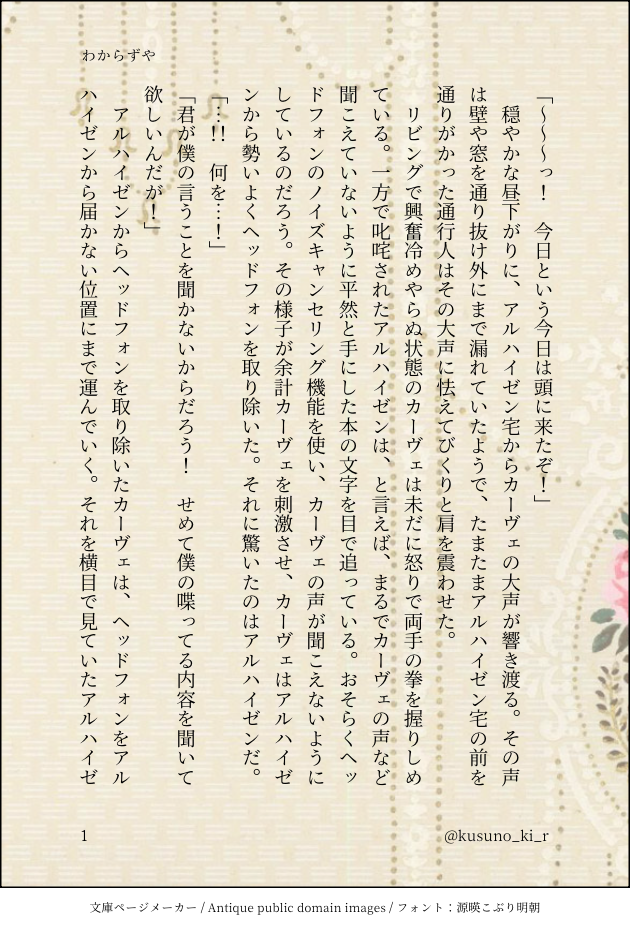 わからずや
「～～～っ！　今日という今日は頭に来たぞ！」
　穏やかな昼下がりに、アルハイゼン宅からカーヴェの大声が響き渡る。その声
は壁や窓を通り抜け外にまで漏れていたようで、たまたまアルハイゼン宅の前を
通りがかった通行人はその大声に怯えてびくりと肩を震わせた。
　リビングで興奮冷めやらぬ状態のカーヴェは未だに怒りで両手の拳を握りしめ
ている。一方で叱咤されたアルハイゼンは、と言えば、まるでカーヴェの声など
聞こえていないように平然と手にした本の文字を目で追っている。おそらくヘッ
ドフォンのノイズキャンセリング機能を使い、カーヴェの声が聞こえないように
しているのだろう。その様子が余計カーヴェを刺激させ、カーヴェはアルハイゼ
ンから勢いよくヘッドフォンを取り除いた。それに驚いたのはアルハイゼンだ。
「…!!　何を…！」
「君が僕の言うことを聞かないからだろう！　せめて僕の喋ってる内容を聞いて
欲しいんだが！」
　アルハイゼンからヘッドフォンを取り除いたカーヴェは、ヘッドフォンをアル
ハイゼンから届かない位置にまで運んでいく。それを横目で見ていたアルハイゼ
1
@kusuno_ki_r
文庫ページメーカー / Antique public domain images / フォント：源暎こぶり明朝